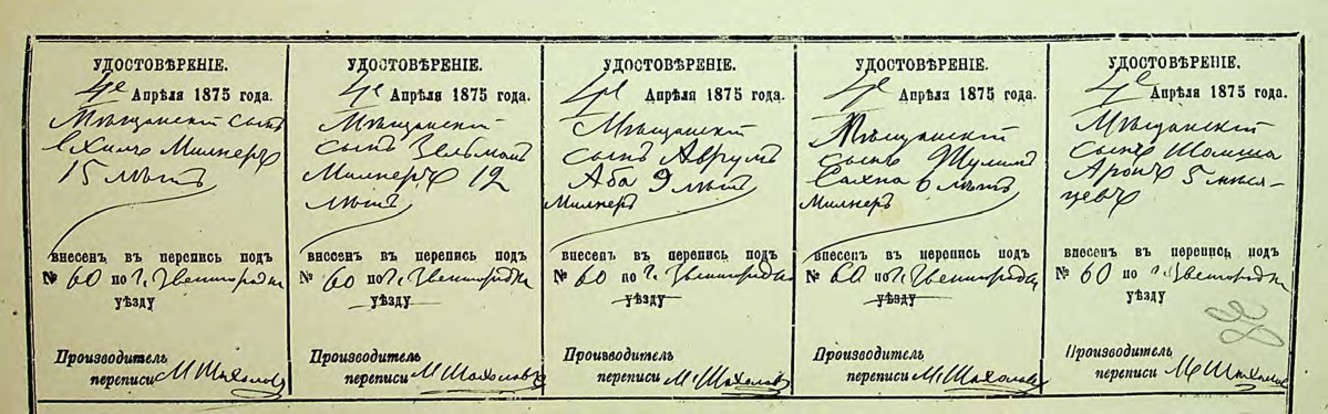 УДОСТОВѢРЕНІЕ.
4го Апрѣля 1875 года.
Мѣщанскій сынъ
Ехилъ Милнеръ
15 лѣтъ
внесенъ въ перепись подъ
№ 60 по г. Звенигородки
уѣзду
Производитель
переписи М
УДОСТОВѢРЕНІЕ.
4го Апрѣля 1875 года.
Мѣщанскій
сынъ Зельманъ
Милнеръ 12
лѣтъ
внесенъ въ перепись подъ
№ 60 по г. Звенигородки
уѣзду
Производитель
переписи М
УДОСТОВѢРЕНІЕ.
4го Апрѣля 1875 года.
Мѣщанскій
сынъ Аврумъ
Аба 9 лѣтъ
Милнеръ
внесенъ въ перепись подъ
№ 60 по г. Звенигородки
уѣзду
Производитель
переписи М.
УДОСТОВѢРЕНІЕ.
4го Апрѣля 1875 года.
Мѣщанскій
сынъ Шулимъ
Сахна 6 лѣтъ
Милнеръ
внесенъ въ перепись подъ
№ 60 по г. Звенигородки
уѣзду
Производитель
переписи М.
УДОСТОВѢРЕНІЕ.
4го Апрѣля 1875 года.
Мѣщанскій
сынъ
Аронъ 5 мѣся-
цевъ
внесенъ въ перепись подъ
№ 60 по г. Звенигородки
уѣзду
Производитель
переписи М.